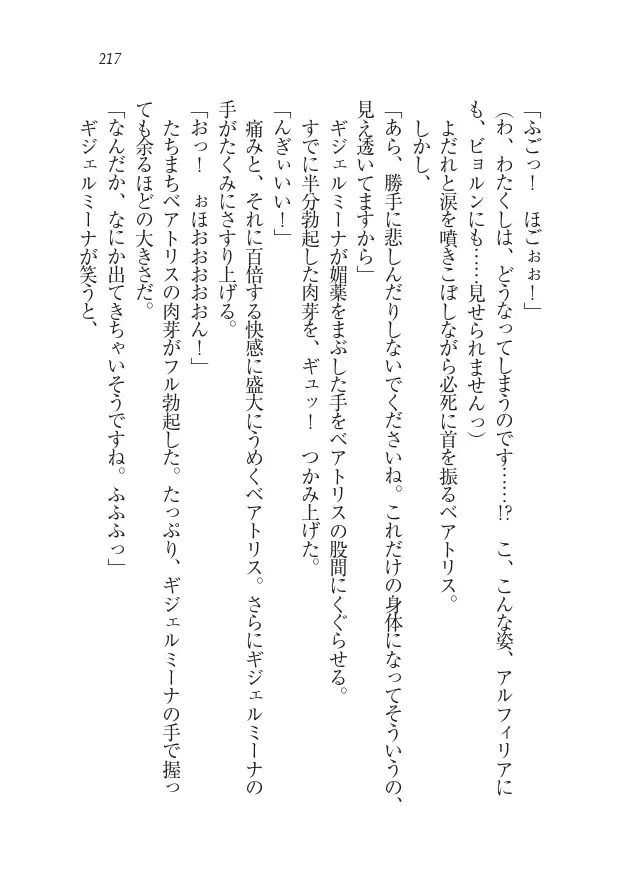 217
「ふごっ！　ほごぉぉ！」
（わ、わたくしは、どうなってしまうのです……!?　こ、こんな姿、アルフィリアに
も、ビョルンにも……見せられませんっ）
　よだれと涙を噴きこぼしながら必死に首を振るベアトリス。
　しかし、
「あら、勝手に悲しんだりしないでくださいね。これだけの身体になってそういうの、
見え透いてますから」
　ギジェルミーナが媚薬をまぶした手をベアトリスの股間にくぐらせる。
　すでに半分勃起した肉芽を、ギュッ！　つかみ上げた。
「んぎぃいい！」
　痛みと、それに百倍する快感に盛大にうめくベアトリス。さらにギジェルミーナの
手がたくみにさすり上げる。
「おっ！　ぉほおおおおおん！」
　たちまちベアトリスの肉芽がフル勃起した。たっぷり、ギジェルミーナの手で握っ
ても余るほどの大きさだ。
「なんだか、なにか出てきちゃいそうですね。ふふふっ」
　ギジェルミーナが笑うと、